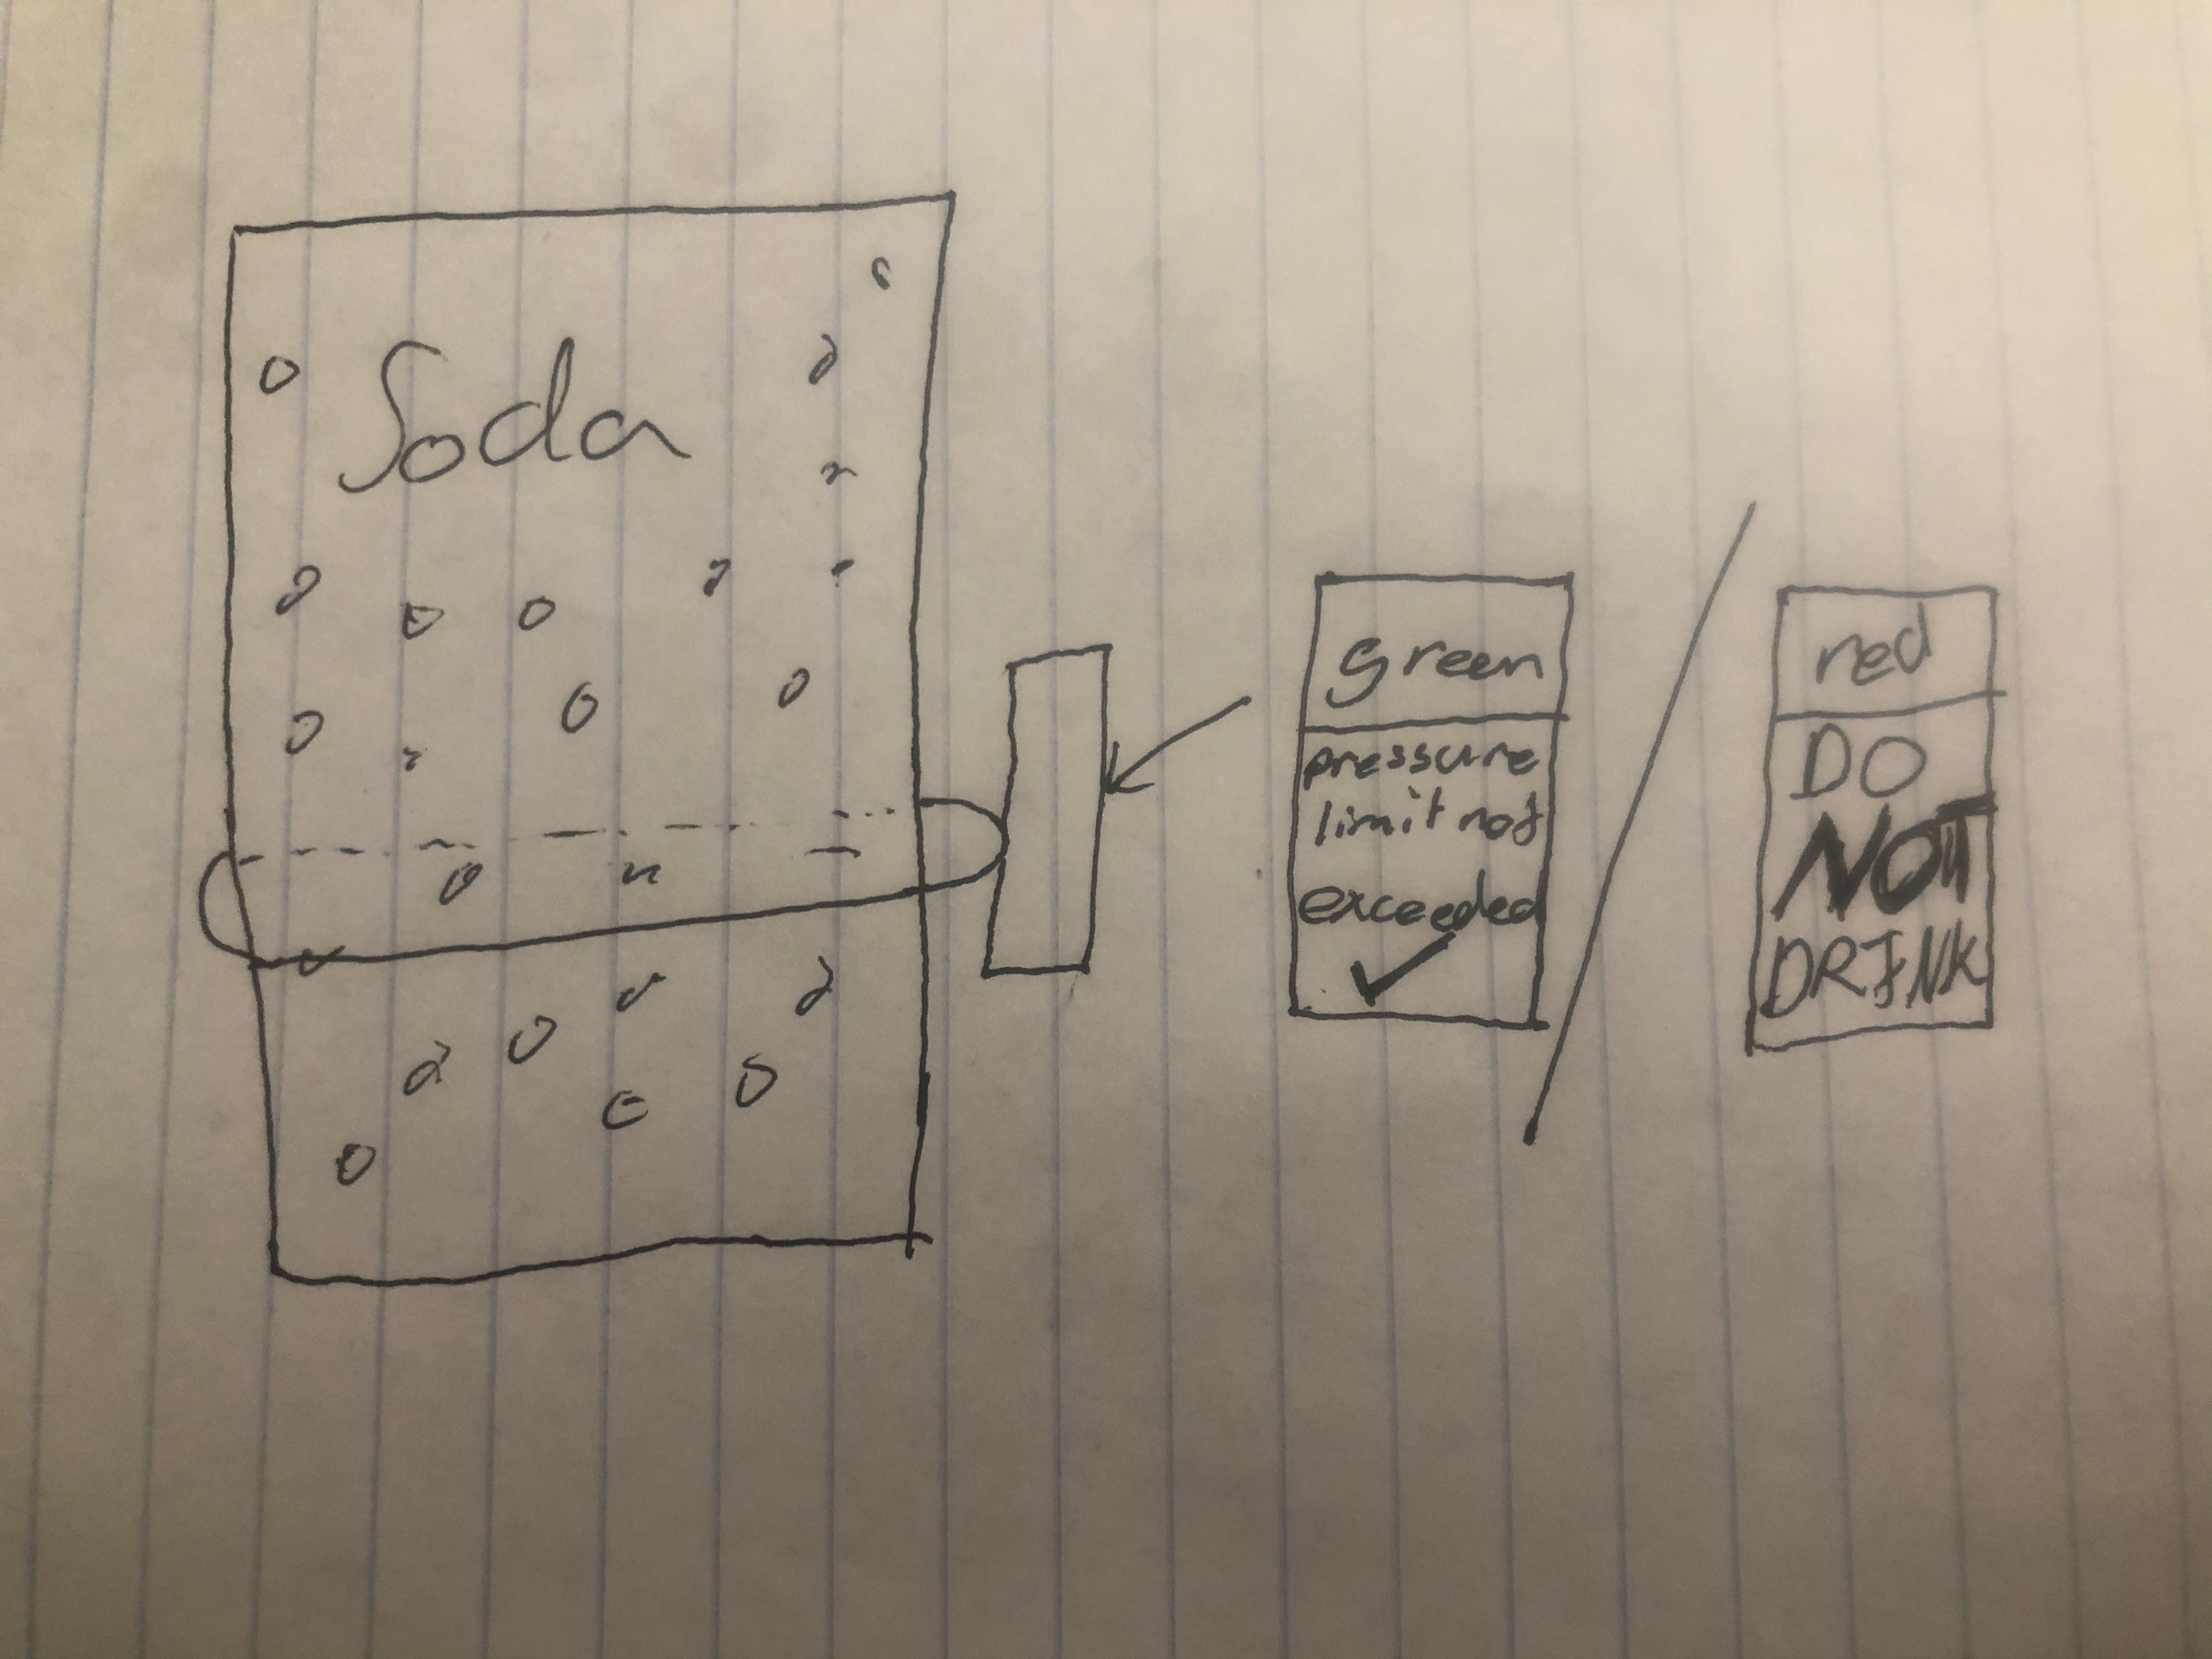 Soda
green
pressure
limit not
exceeded
red
DO
NOT
DRINK